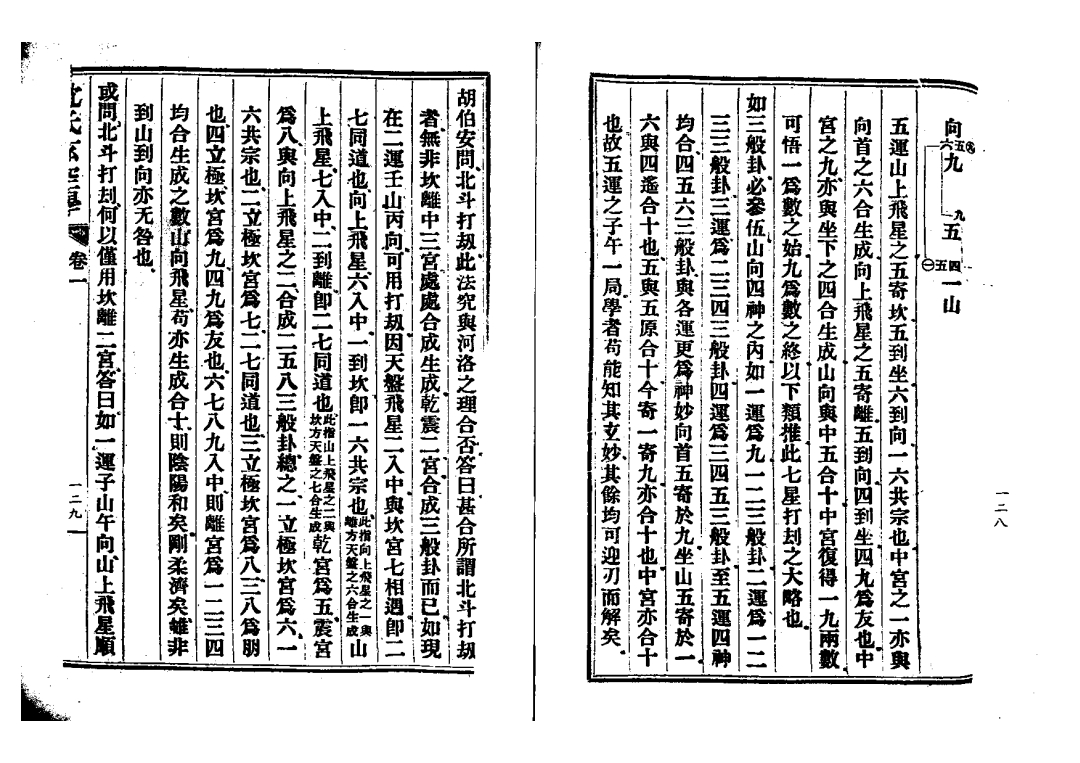 向 六五九 九 五 一 五四 一山
五運山上飛星之五寄坎五到坐六到向一六共宗也中宮之一亦與
向首之六合生成向上飛星之五寄離五到向四到坐四九爲友也中
宮之九亦與坐下之四合生成山向與中五合十中宮復得一九兩數
可悟一爲數之始九爲數之終以下類推此七星打刦之大略也
如三般卦必參伍山向四神之內如一運爲九一二三般卦二運爲一二
三三般卦三運爲二三四三般卦四運爲三四五三般卦至五運四神
均合四五六三般卦與各運更爲神妙向首五寄於九坐山五寄於一
六與四遙合十也五與五原合十今寄一寄九亦合十也中宮亦合十
也故五運之子午一局學者苟能知其玄妙其餘均可迎刃而解矣
一二八
胡伯安問北斗打刼此法究與河洛之理合否答曰甚合所謂北斗打刼
者無非坎離中三宮處處合成生成乾震二宮合成三般卦而已如現
在二運壬山丙向可用打刼因天盤飛星二入中與坎宮七相遇卽二
七同道也向上飛星六入中一到坎卽一六共宗也此指向上飛星之一與離方天盤之六合生成山
上飛星七入中二到離卽二七同道也此指山上飛星之二與坎方天盤之七合生成乾宮爲五震宮
爲八與向上飛星之二合成二五八三般卦總之一立極坎宮爲六一
六共宗也二立極坎宮爲七二七同道也三立極坎宮爲八三八爲朋
也四立極坎宮爲九四九爲友也六七八九入中則離宮爲一二三四
均合生成之數山向飛星苟亦生成合十則陰陽和矣剛柔濟矣雖非
到山到向亦无咎也
或問北斗打刦何以僅用坎離二宮答曰如一運子山午向山上飛星順
沈氏玄空學 卷一
一二九